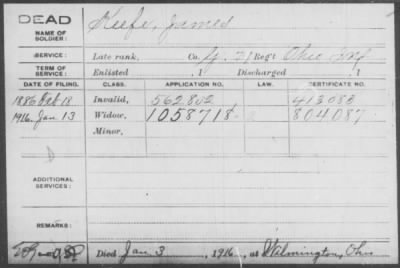 DEAD
NAME OF SOLDIER: Keefe, James
SERVICE: Late rank, Co. G. 31 Reg't Ohio Inf
TERM OF SERVICE: Enlisted , 1 Discharged , 1
DATE OF FILING. CLASS. APPLICATION NO. LAW. CERTIFICATE NO.
1886 Feb 18 Invalid, 562802 413083
1916 Jan 13 Widow, 1058718 804087
Minor,
ADDITIONAL SERVICES:
REMARKS:
Died Jan. 3, 1916, at Wilmington, Ohio